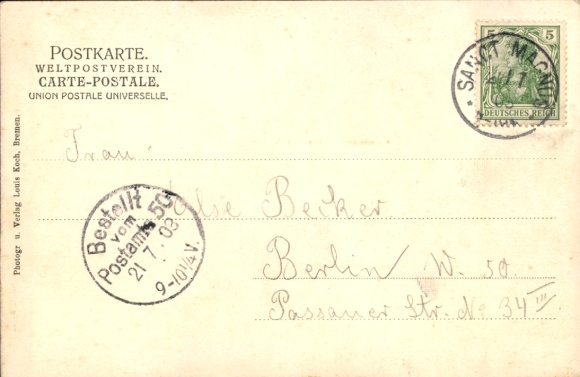 POSTKARTE.
WELTPOSTVEREIN.
CARTE-POSTALE.
UNION POSTALE UNIVERSELLE.
5 5
DEUTSCHES REICH
SANCT MAGNUS
Photogr u. Verlag Louis Koch, Bremen.
Frau
Else Becker
Berlin W. 50.
Passauer Str. No 34 III
Bestellt
vom
Postamte 50
21 7. 03
9-10¼V.